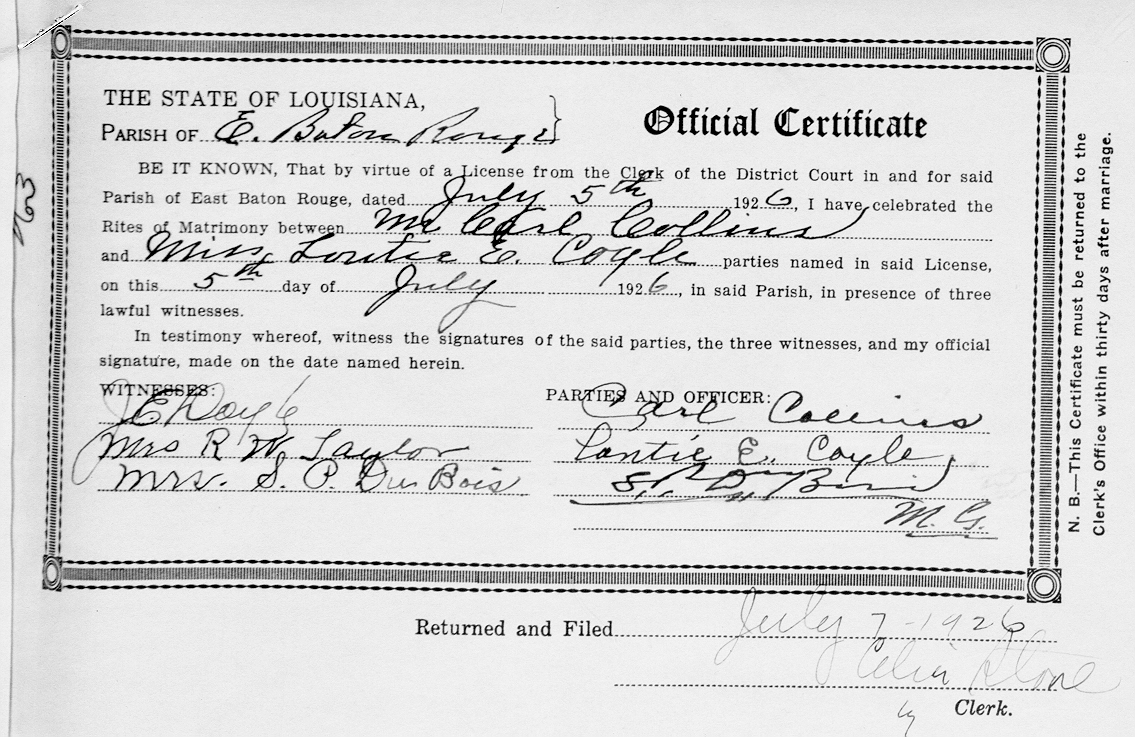 THE STATE OF LOUISIANA,
PARISH OF E. Baton Rouge
Official Certificate
BE IT KNOWN, That by virtue of a License from the Clerk of the District Court in and for said
Parish of East Baton Rouge, dated July 5th 1926, I have celebrated the
Rites of Matrimony between Mr Carl Collins
and Miss Lontie E. Coyle parties named in said License,
on this 5th day of July 1926, in said Parish, in presence of three
lawful witnesses.
In testimony whereof, witness the signatures of the said parties, the three witnesses, and my official
signature, made on the date named herein.
WITNESSES:
J E Doyle
Mrs R W Taylor
Mrs. S. P. DuBois
PARTIES AND OFFICER:
Carl Collins
Lontie E. Coyle
M. G.
N. B.—This Certificate must be returned to the
Clerk's Office within thirty days after marriage.
Returned and Filed July 7-1926
Celia Stone
by Clerk.